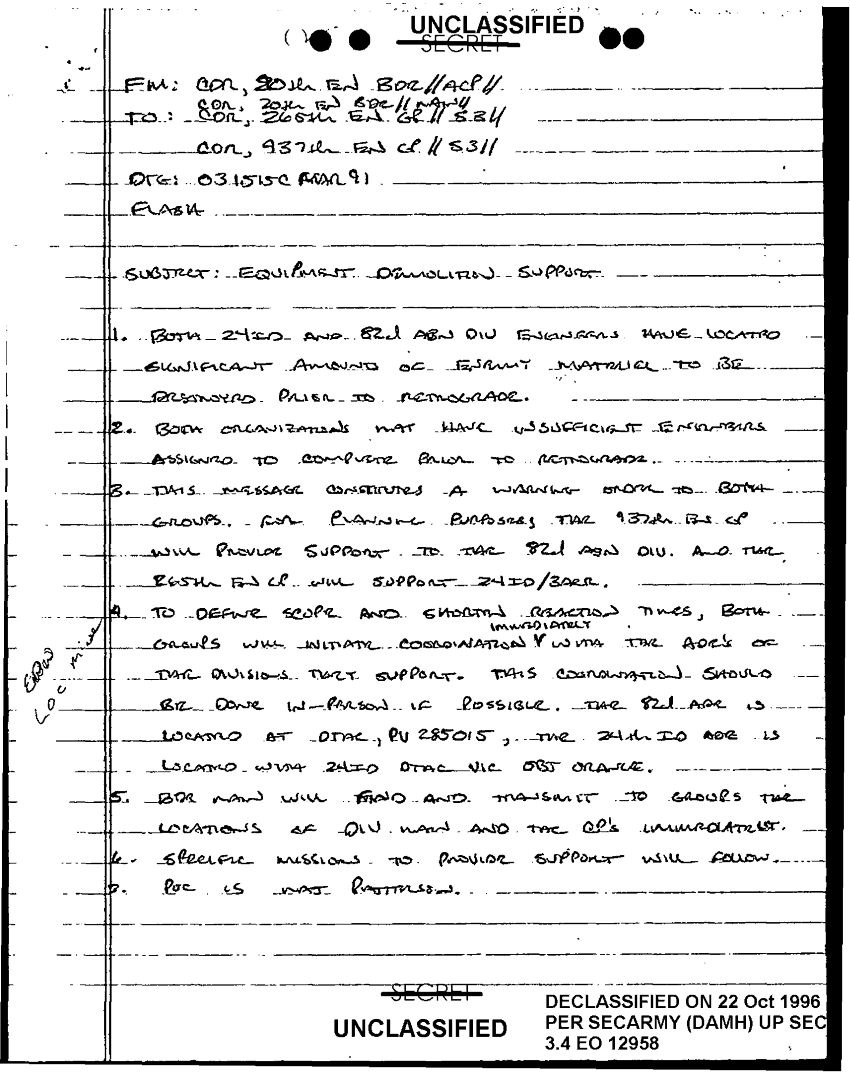 UNCLASSIFIED
SECRET
FM: CDR, 20th EN BDE//ACP//
CDR, 20th EN BDE//MAIN//
TO: CDR, 265th EN GP//S3//
CDR, 937th EN GP//S3//
DTG: 031515C MAR 91
FLASH
SUBJECT: EQUIPMENT DEMOLITION SUPPORT
1. BOTH 24ID AND 82d ABN DIV ENGINEERS HAVE LOCATED
SIGNIFICANT AMOUND OF ENEMY MATRLIEL TO BE
DESTROYED PRIOR TO RETROGRADE.
2. BOTH ORGANIZATIONS MAY HAVE INSUFFICIENT ENGINEERS
ASSIGNED TO COMPLETE PRIOR TO RETROGRADE.
3. THIS MESSAGE CONSTITUTES A WARNING ORDER TO BOTH
GROUPS. FOR PLANNING PURPOSES, THE 937th EN GP
WILL PROVIDE SUPPORT TO THE 82d ABN DIV. AND THE
265th EN GP WILL SUPPORT 24ID/3ACR.
4. TO DEFINE SCOPE AND SHORTEN REACTION TIMES, BOTH
IMMEDIATELY
GROUPS WILL INITIATE COORDINATION WITH THE ADE'S OF
THE DIVISIONS THEY SUPPORT. THIS COORDINATION SHOULD
BE DONE IN-PERSON IF POSSIBLE. THE 82d ADE IS
LOCATED AT DTAC, PU 285015, THE 24th ID ADE IS
LOCATED WITH 24ID DTAC VIC OBJ ORANGE.
5. BDE MAIN WILL FIND AND TRANSMIT TO GROUPS THE
LOCATIONS OF DIV MAIN AND TAC CP'S IMMEDIATELY.
6. SPECIFIC MISSIONS TO PROVIDE SUPPORT WILL FOLLOW.
7. POC IS MAJ PATTERSON.
SECRET
UNCLASSIFIED
DECLASSIFIED ON 22 Oct 1996
PER SECARMY (DAMH) UP SEC
3.4 EO 12958